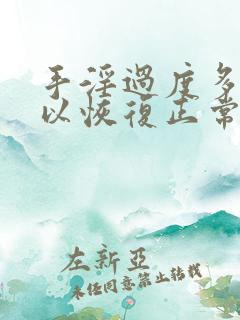 手淫過度多
以恢復正常
左新亞
未经同意禁止转载